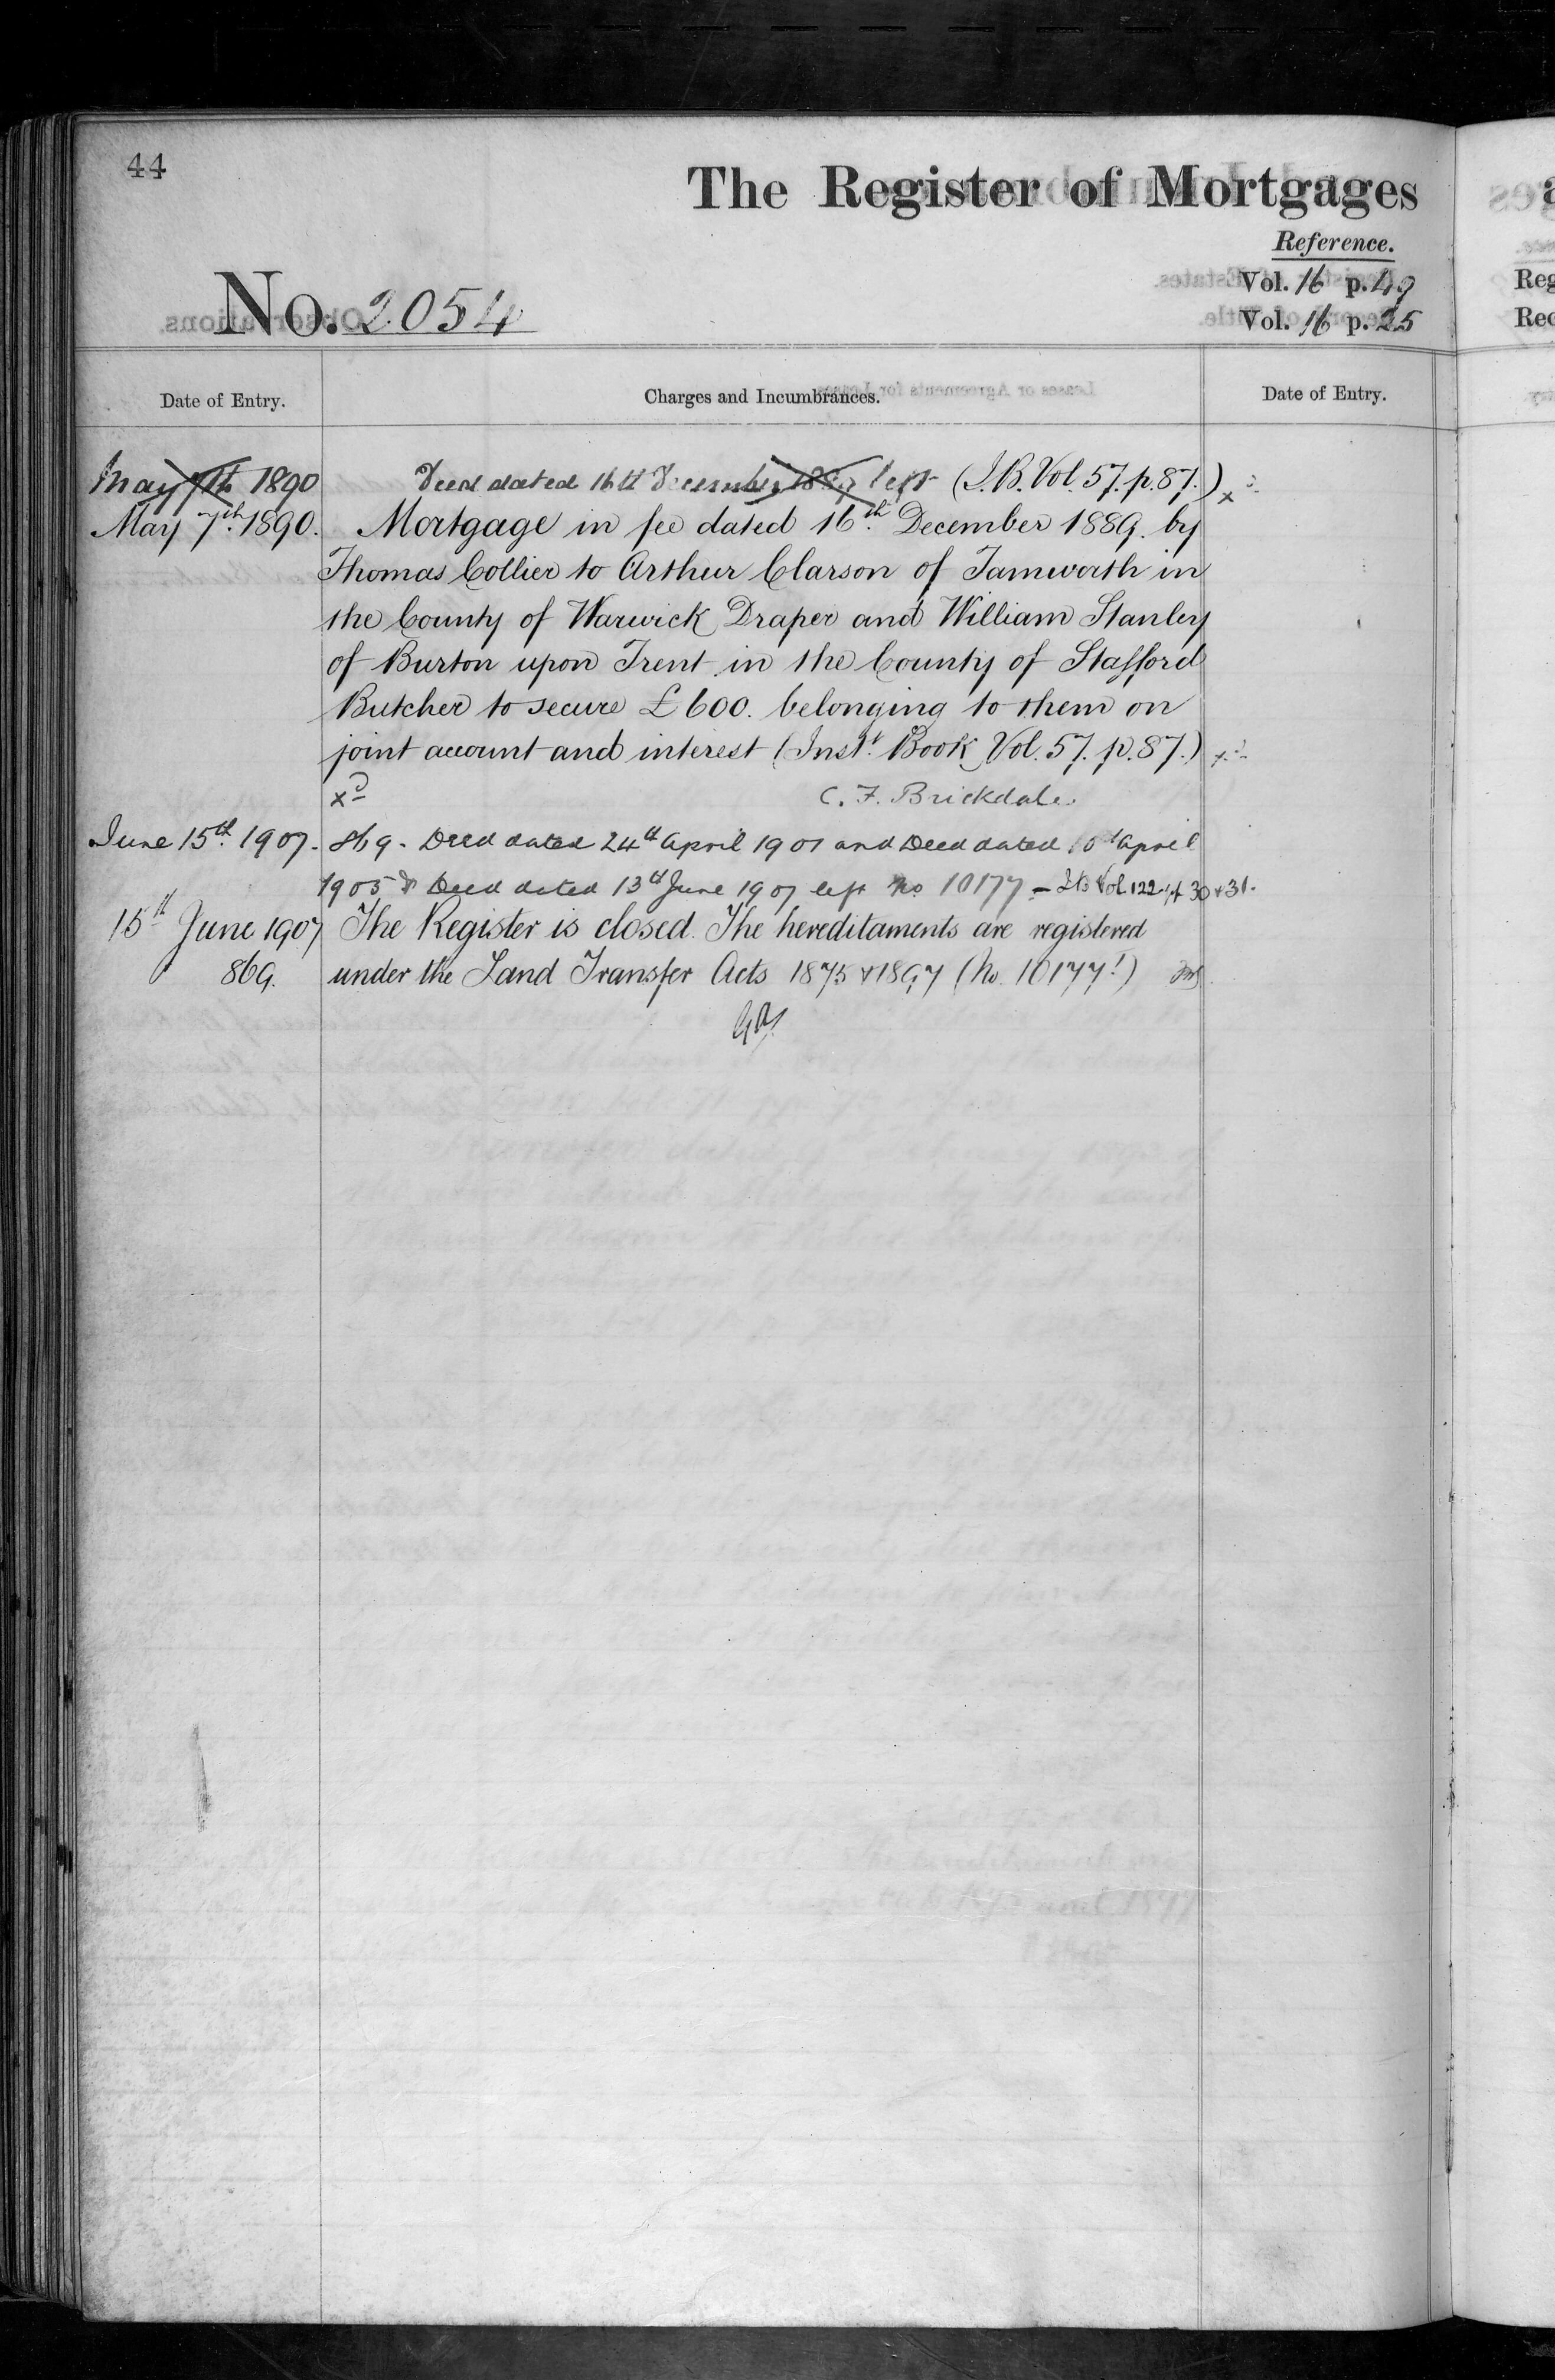 44
The Register of Mortgages
Reference.
No. 2054
Vol. 16 p. 49
Vol. 16 p. 25
Date of Entry.
Charges and Incumbrances.
Date of Entry.
May 7th 1890 Deed dated 16th December 1889 left (I.B. Vol. 57. p. 87.)
May 7th 1890. Mortgage in fee dated 16th December 1889. by
Thomas Collier to Arthur Clarson of Tamworth in
the County of Warwick Draper and William Stanley
of Burton upon Trent in the County of Stafford
Butcher to secure £600. belonging to them on
joint account and interest (Inst. Book Vol. 57. p. 87.)
C. F. Brickdale.
June 15th 1907. 869. Deed dated 24th April 1901 and Deed dated 10th April
1905 & Deed dated 13th June 1907 left No. 10177 - I.B. Vol. 122 30 & 31.
15th June 1907 The Register is closed. The hereditaments are registered
869. under the Land Transfer Acts 1875 & 1897 (No. 10177!)